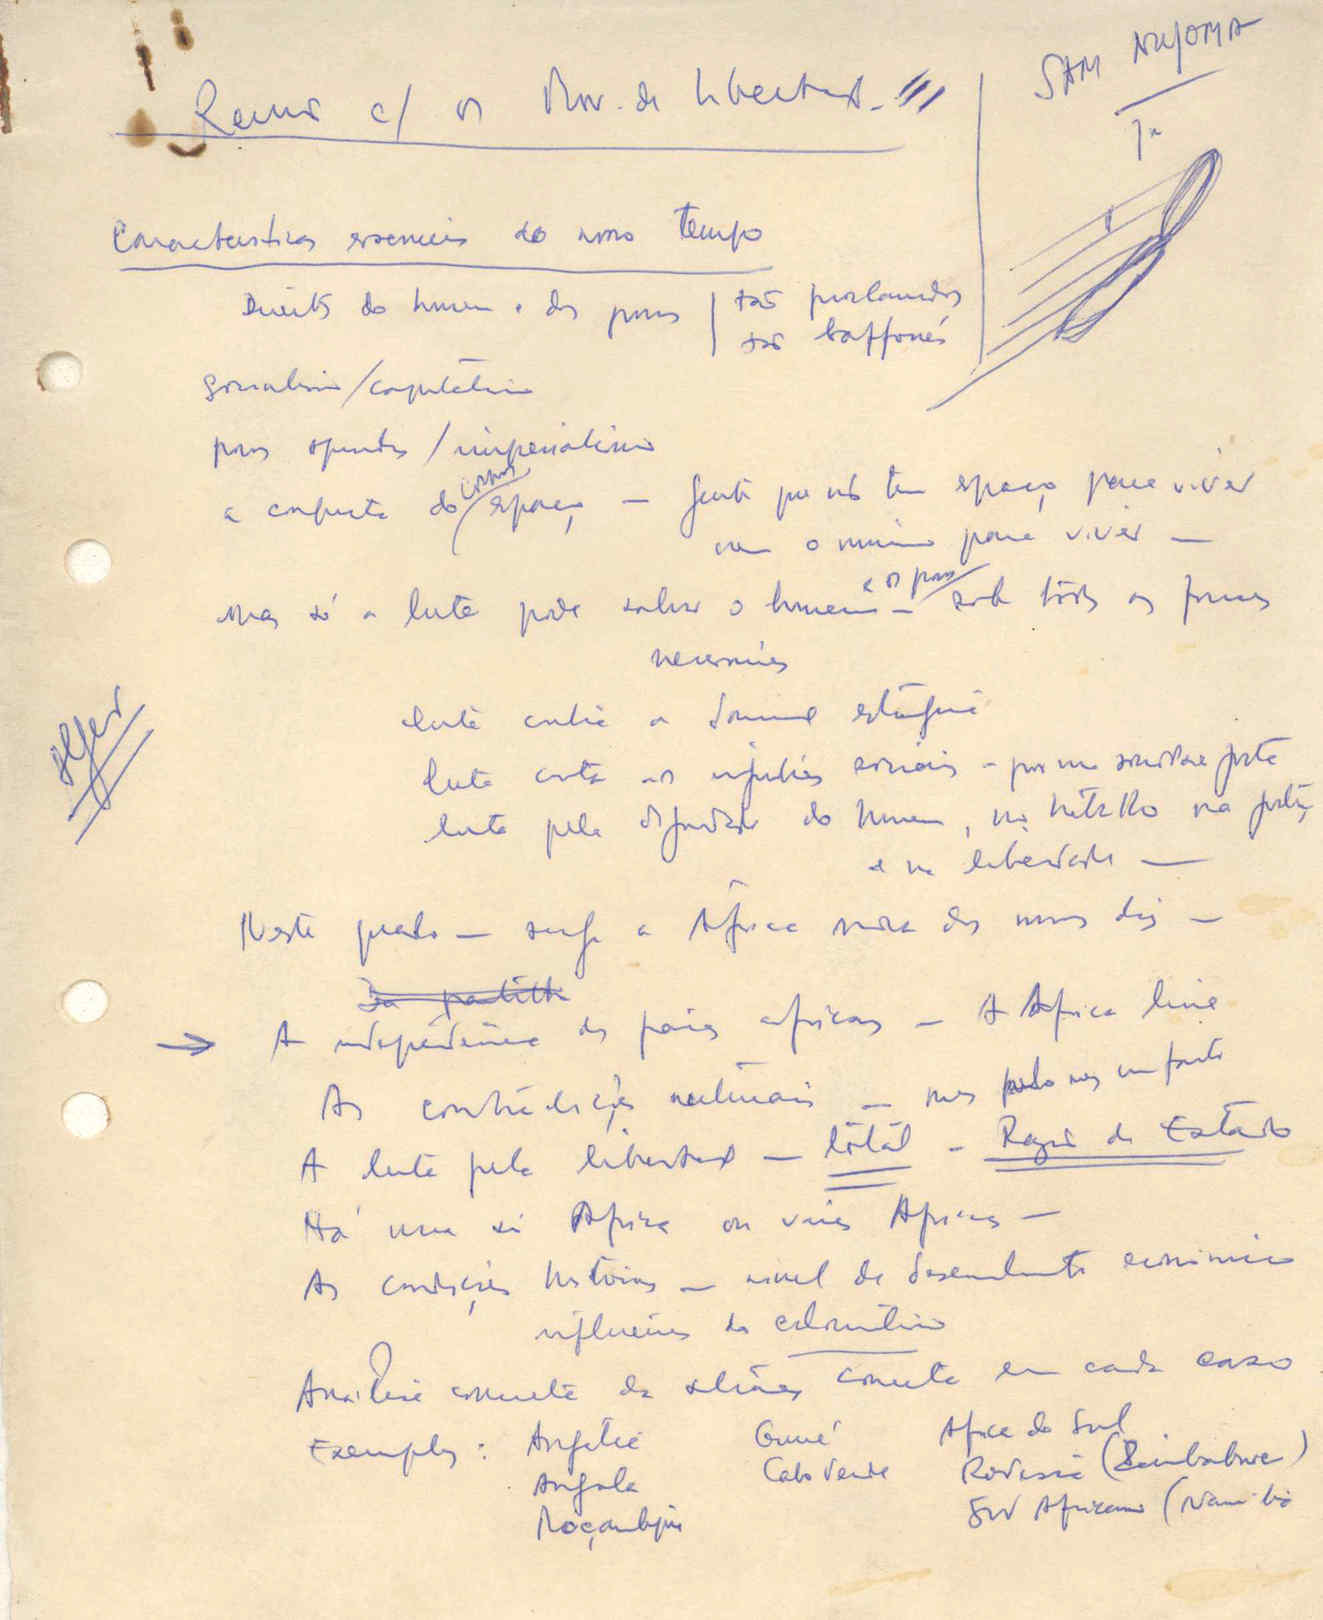 Reunião c/ os Mov. de libertação
SAM NUJOMA
Características essenciais do nosso tempo
Direitos do homem e dos povos | são proclamados
são bafoués
Socialismo/capitalismo
povos oprimidos / imperialismo
a conquista do cosmos espaço — Gente que não tem espaço para viver
nem o mínimo para viver —
Mas só a luta pode salvar o homem e os povos — sob todas as formas
necessárias
Argel
luta contra a dominação estrangeira
luta contra as injustiças sociais - por uma sociedade justa
luta pela dignidade do homem, no trabalho na justiça
e na liberdade —
Neste quadro — surge a África nova dos nossos dias —
Da partilha
→ A independência dos países africanos — A África livre
As contradições naturais — mas
A luta pela libertação — total - Razão de Estado
Há uma só África ou várias Áfricas —
As condições históricas — nível de desenvolvimento económico
influências do colonialismo
Análise concreta da situação concreta em cada caso
Exemplos: Argélia Guiné África do Sul
Angola Cabo Verde Rodésia (Zimbabwe)
Moçambique SW Africano (Namíbia